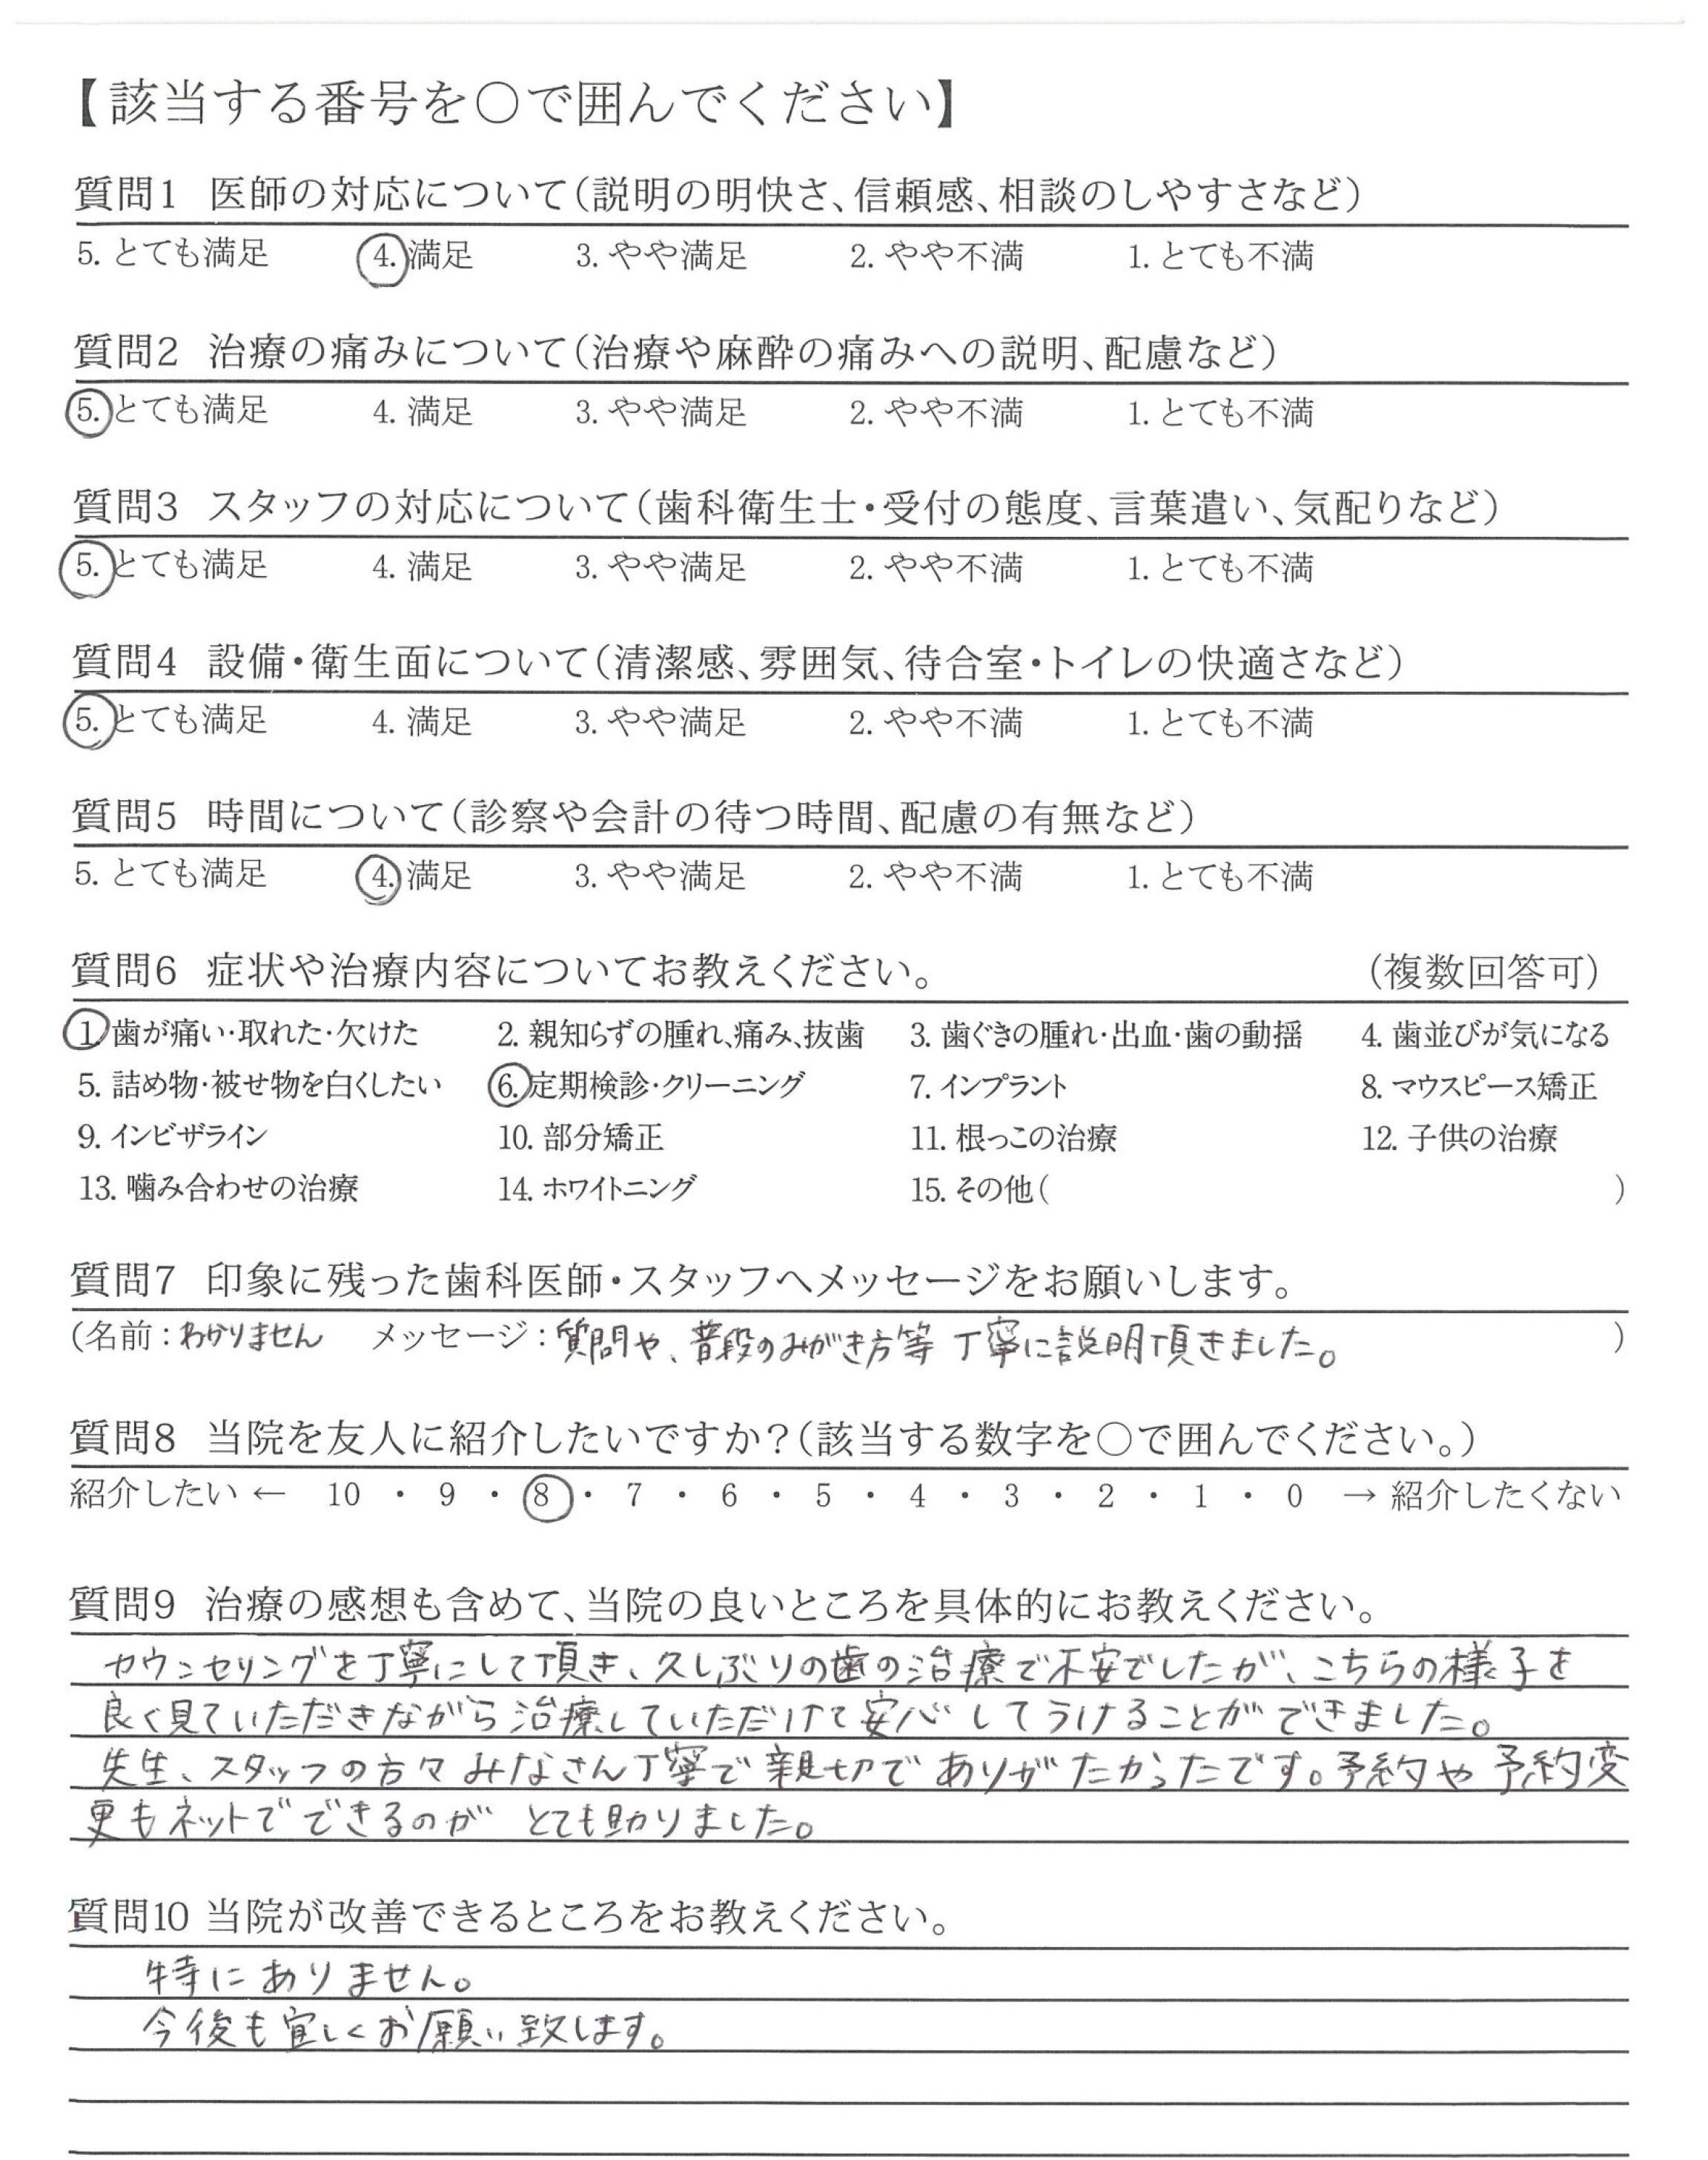 【該当する番号を○で囲んでください】
質問1 医師の対応について(説明の明快さ、信頼感、相談のしやすさなど)
5. とても満足 4. 満足 3. やや満足 2. やや不満 1. とても不満
質問2 治療の痛みについて(治療や麻酔の痛みへの説明、配慮など)
5. とても満足 4. 満足 3. やや満足 2. やや不満 1. とても不満
質問3 スタッフの対応について(歯科衛生士・受付の態度、言葉遣い、気配りなど)
5. とても満足 4. 満足 3. やや満足 2. やや不満 1. とても不満
質問4 設備・衛生面について(清潔感、雰囲気、待合室・トイレの快適さなど)
5. とても満足 4. 満足 3. やや満足 2. やや不満 1. とても不満
質問5 時間について(診察や会計の待つ時間、配慮の有無など)
5. とても満足 4. 満足 3. やや満足 2. やや不満 1. とても不満
質問6 症状や治療内容についてお教えください。 (複数回答可)
1. 歯が痛い・取れた・欠けた 2. 親知らずの腫れ、痛み、抜歯 3. 歯ぐきの腫れ・出血・歯の動揺 4. 歯並びが気になる
5. 詰め物・被せ物を白くしたい 6. 定期検診・クリーニング 7. インプラント 8. マウスピース矯正
9. インビザライン 10. 部分矯正 11. 根っこの治療 12. 子供の治療
13. 噛み合わせの治療 14. ホワイトニング 15. その他( )
質問7 印象に残った歯科医師・スタッフへメッセージをお願いします。
(名前：わかりません メッセージ：質問や、普段のみがき方等 丁寧に説明頂きました。 )
質問8 当院を友人に紹介したいですか？(該当する数字を○で囲んでください。)
紹介したい ← 10 ・ 9 ・ 8 ・ 7 ・ 6 ・ 5 ・ 4 ・ 3 ・ 2 ・ 1 ・ 0 → 紹介したくない
質問9 治療の感想も含めて、当院の良いところを具体的にお教えください。
カウンセリングを丁寧にして頂き、久しぶりの歯の治療で不安でしたが、こちらの様子を
良く見ていただきながら治療していただけて安心してうけることができました。
先生、スタッフの方々みなさん丁寧で親切でありがたかったです。予約や予約変
更もネットでできるのが とても助りました。
質問10 当院が改善できるところをお教えください。
特にありません。
今後も宜しくお願い致します。